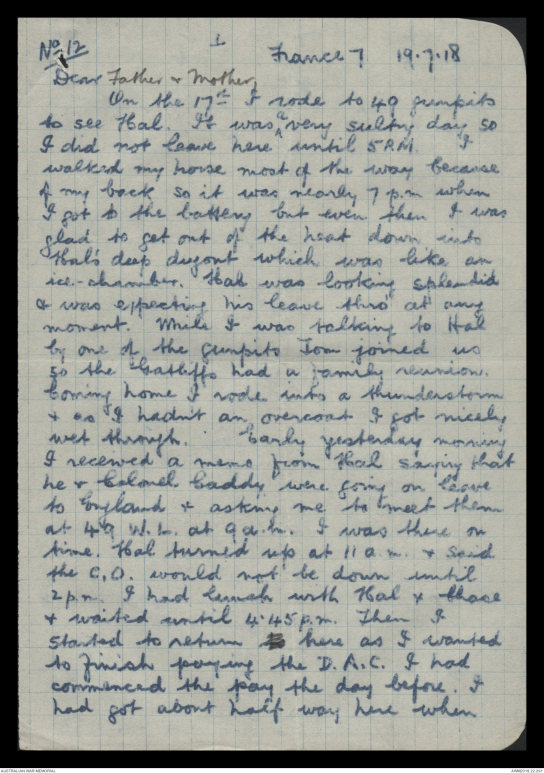 No 12
1
France 7 19.7.18
Dear Father & Mother,
On the 17th I rode to 49 gunpits
to see Hal. It was a very sultry day so
I did not leave here until 5 P.M. I
walked my horse most of the way because
of my back, so it was nearly 7 p.m when
I got to the battery but even then I was
glad to get out of the heat down into
Hal's deep dugout which was like an
ice-chamber. Hal was looking splendid
& was expecting his leave thro' at any
moment. While I was talking to Hal
by one of the gunpits Tom joined us
so the Gatliffs had a family reunion.
Coming home I rode into a thunderstorm
& as I hadn't an overcoat I got nicely
wet through. Early yesterday morning
I received a memo from Hal saying that
he & Colonel Caddy were going on leave
to England & asking me to meet them
at 49 W.L. at 9 a.m. I was there on
time. Hal turned up at 11 a.m. & said
the C.O. would not be down until
2 p.m. I had lunch with Hal &
& waited until 4.45 p.m. Then I
started to return here as I wanted
to finish paying the D.A.C. I had
commenced the pay the day before. I
had got about half way here when
AUSTRALIAN WAR MEMORIAL